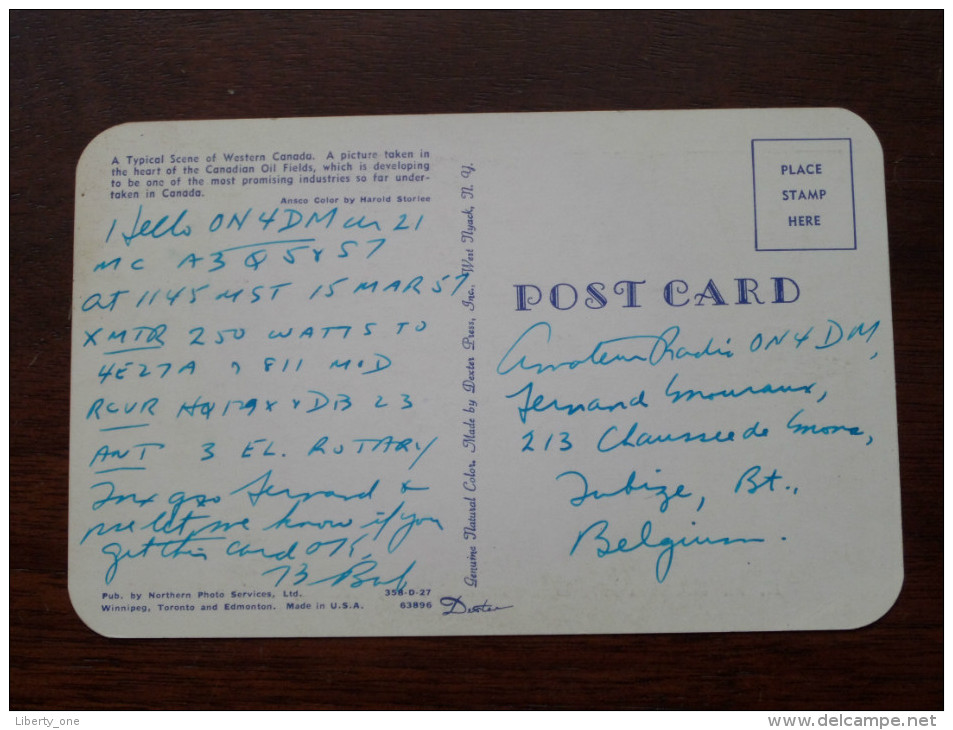 A Typical Scene of Western Canada. A picture taken in
the heart of the Canadian Oil Fields, which is developing
to be one of the most promising industries so far under-
taken in Canada.
Ansco Color by Harold Storlee
Hello ON4DM ur 21
MC A3 Q5 57
at 1145 MST 15 MAR 57
XMTR 250 WATTS TO
4E27A 811 MOD
RCVR HQ129X DB 23
ANT 3 EL. ROTARY
Tnx qso Fernand &
pse let me know if you
get this card OK.
73 Bob
Pub. by Northern Photo Services, Ltd.
Winnipeg, Toronto and Edmonton. Made in U.S.A.
358-D-27
63896
Genuine Natural Color. Made by Dexter Press, Inc., West Nyack, N. Y.
Dexter
PLACE
STAMP
HERE
POST CARD
Amateur Radio ON4DM,
Fernand Mouraux,
213 Chaussee de Mons,
Tubize, Bt.,
Belgium.
Liberty_one
www.delcampe.net